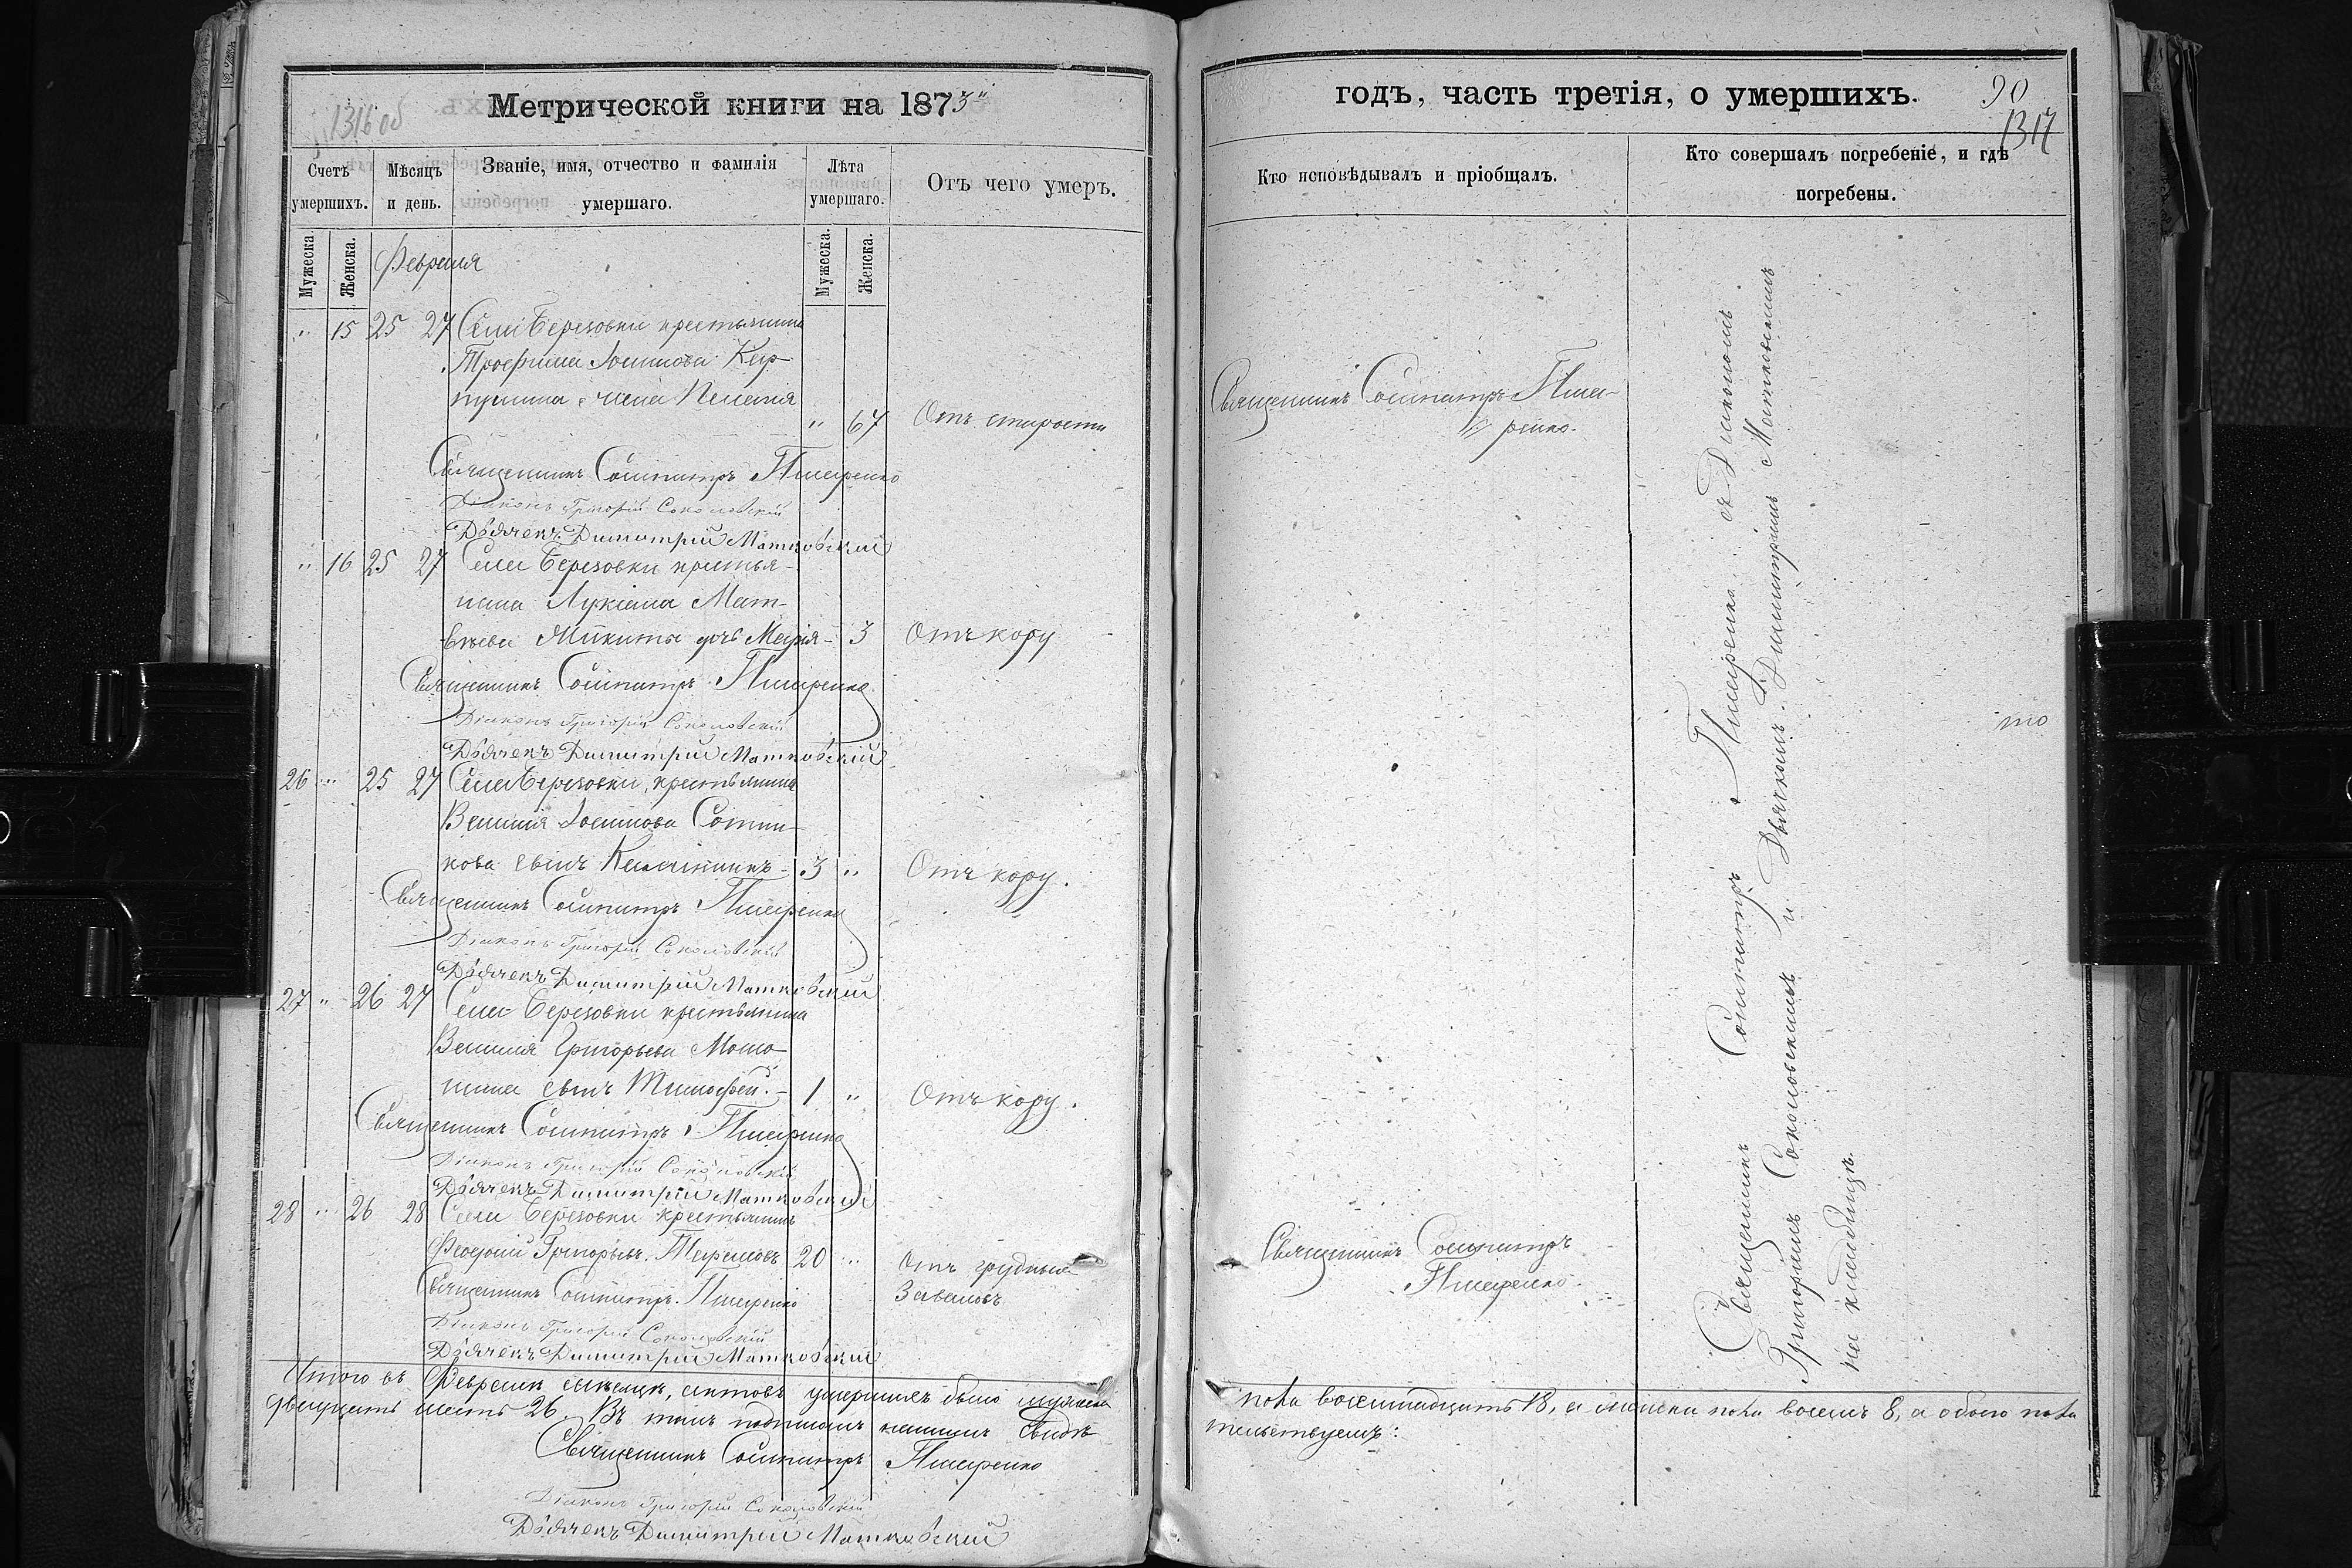 1316 об
Метрической книги на 1873
Счетъ умершихъ.
Мѣсяцъ и день.
Званіе, имя, отчество и фамилія умершаго.
Лѣта умершаго.
Отъ чего умеръ.
Мужеска.
Женска.
Мужеска.
Женска.
Февраля
" 15 25 27 Села Березовки крестьянина
Трофима
жена
" 67 Отъ старости
Священникъ Сосипатръ
Діаконъ Григорій Соколовскій
Дьячекъ Димитрій Матковскій
" 16 25 27 Села Березовки крестья-
нина Лукіана Мат-
вѣева Микиты дочь Марія - 3 Отъ кору
Священникъ Сосипатръ
Діаконъ Григорій Соколовскій
Дьячекъ Димитрій Матковскій
26 " 25 27 Села Березовки, крестьянина
Василія Сотни-
кова сынъ 3 " Отъ кору.
Священникъ Сосипатръ
Діаконъ Григорій Соколовскій
Дьячекъ Димитрій Матковскій
27 " 26 27 Села Березовки крестьянина
Василія Григорьева
сынъ Тимофей. - 1 " Отъ кору.
Священникъ Сосипатръ
Діаконъ Григорій Соколовскій
Дьячекъ Димитрій Матковскій
28 " 26 28 Села Березовки крестьянинъ
Григорьевъ 20 " Отъ грудныхъ
Заваловъ
Священникъ Сосипатръ
Діаконъ Григорій Соколовскій
Дьячекъ Димитрій Матковскій
Итого въ Февралѣ мѣсяцѣ, умершихъ было мужеска
двадцать шесть 26. Въ томъ подписомъ нашимъ свидѣ-
Священникъ Сосипатръ
Діаконъ Григорій Соколовскій
Дьячекъ Димитрій Матковскій
годъ, часть третія, о умершихъ.
90
1317
Кто исповѣдывалъ и пріобщалъ.
Кто совершалъ погребеніе, и гдѣ
погребены.
Священникъ Сосипатръ
Священникъ Сосипатръ
Священникъ Сосипатръ съ Діакономъ
Григоріемъ Соколовскимъ и Дьячкомъ Димитріемъ Матковскимъ
на кладбищѣ.
то
пола восемнадцать 18, а женска пола восемь 8, а обоего пола
тельствуемъ: